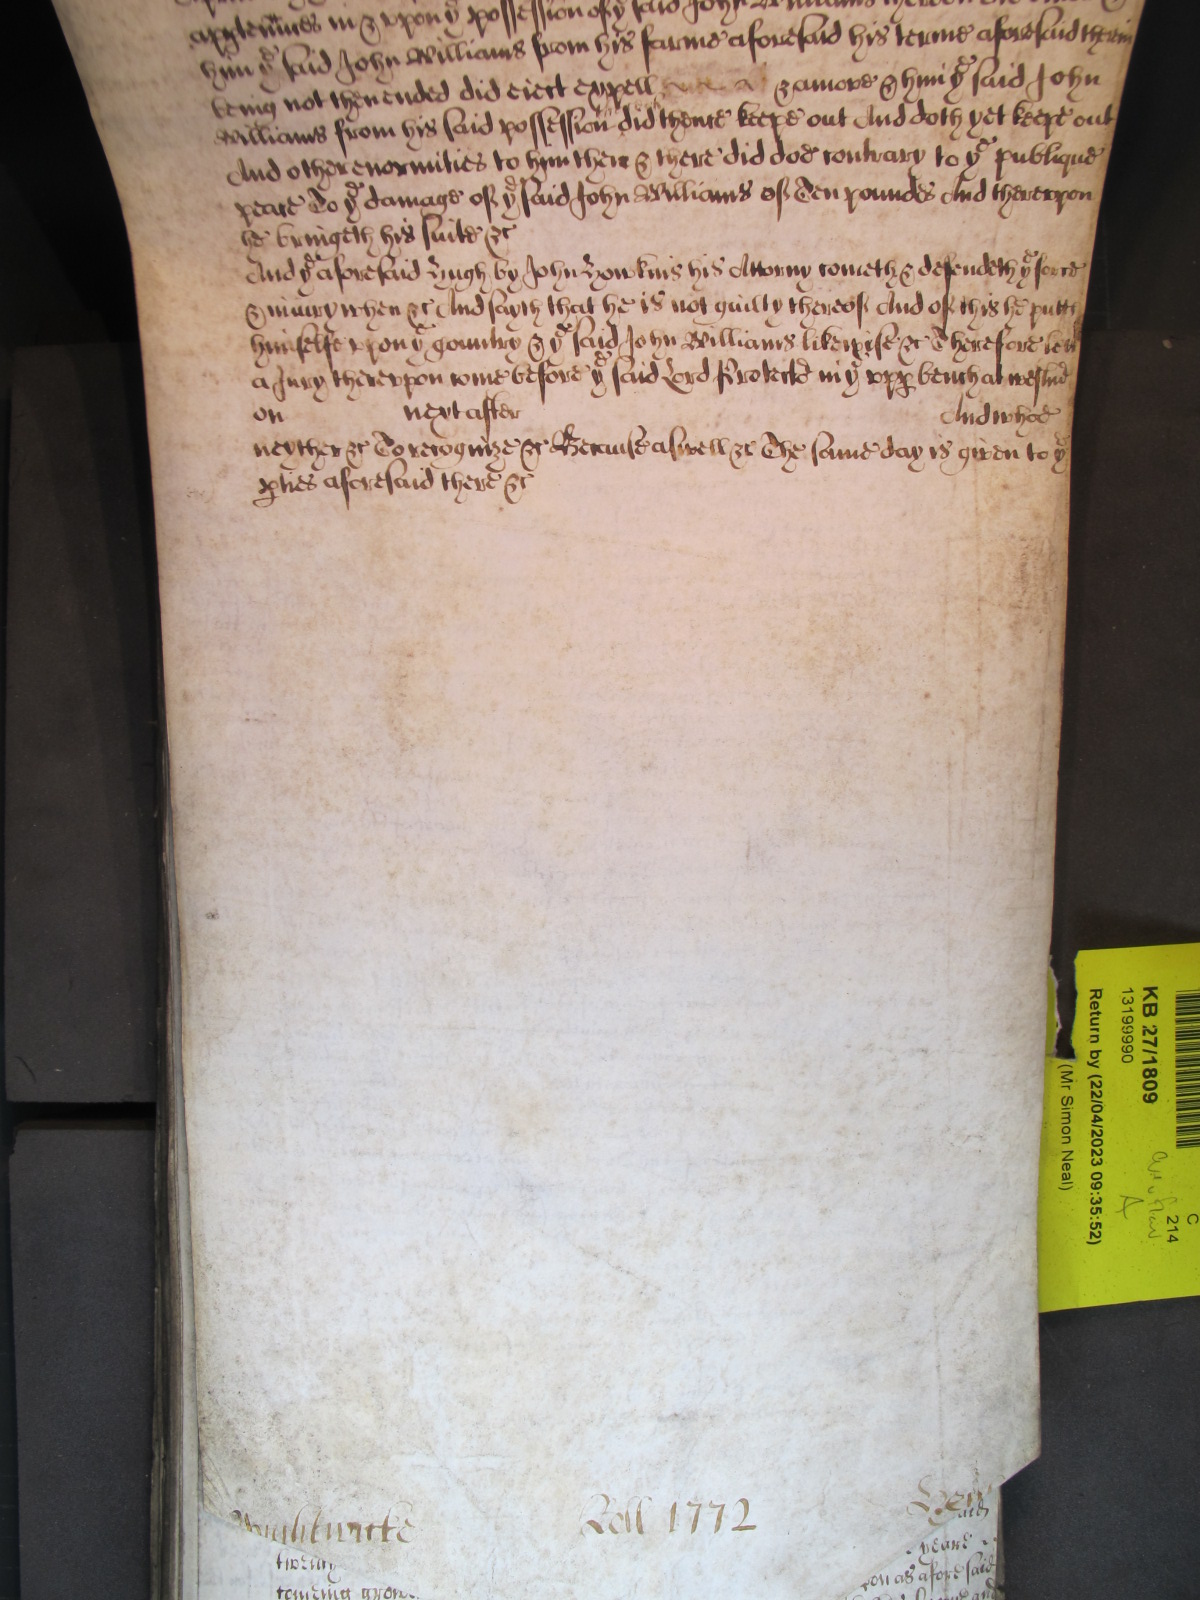 apptenn̄ces in & vpon yͤ possession of yͤ said John Williams thereon did enter &
him yͤ said John Williams from his farme aforesaid his terme aforesaid therein
being not then ended did eiect expell & amove & him yͤ said John
Williams from his said possession did thence keepe out And doth yet keepe out
And other enormities to him then & there did doe contrary to yͤ publique
peace To yͤ damage of yͤ said John Williams of Ten poundes And therevpon
he bringeth his suite &c
And yͤ aforesaid Hugh by John Howkins his Attorny cometh & defendeth yͤ force
& iniury when &c And sayth that he is not guilty thereof And of this he putts
himselfe vpon yͤ country & yͤ said John Williams likewise &c Therefore lett
a Jury therevpon come before yͤ said Lord Protector in yͤ vpp bench at westmr
on next after And whoe
neyther &c To recognize &c Because aswell &c The same day is given to yͤ
pties aforesaid there &c
Wightwicke Roll 1772
said
twenty yeare
comeing grow von as afore said
KB 27/1809
13199990
Return by (22/04/2023 09:35:52)
(Mr Simon Neal)
C
214
A